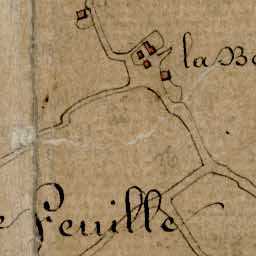 la Be
feuille